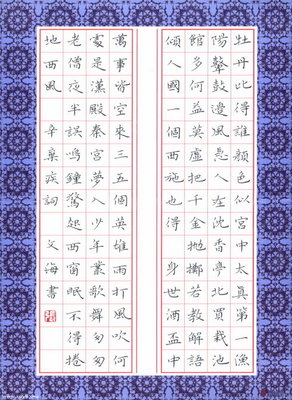 牡丹比得誰顏色似宮中太真第一漁
陽鼙鼓邊風急人在沉香亭北買栽池
館多何益莫虛把千金拋擲若教解語
傾人國一個西施也得 身世酒盃中
萬事皆空來三五個英雄雨打風吹何
處是漢殿秦宮夢入少年叢歌舞匆匆
老僧夜半誤鳴鐘驚起西窗眠不得捲
地西風 辛棄疾詞 文海書